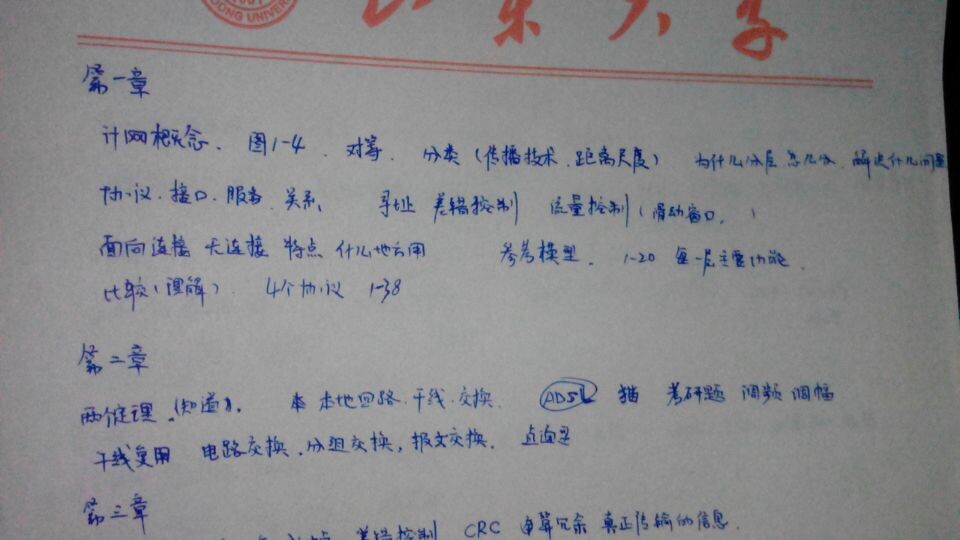 DONG UNIVERSITY
山东大学
第一章
计网概念. 图1-4. 对等. 分类(传播技术.距离尺度) 为什么分层 怎么分. 解决什么问题
协议.接口.服务.关系 寻址 差错控制 流量控制(滑动窗口. )
面向连接 无连接 特点 什么地方用 参考模型. 1-20 每一层主要功能.
比较(理解). 4个协议 1-38
第二章
两个定理.(知道). 本地回路.干线.交换. ADSL 猫 考研题 调频 调幅
干线复用 电路交换.分组交换,报文交换.
第三章
差错控制 CRC 冗余 真正传输的信息.